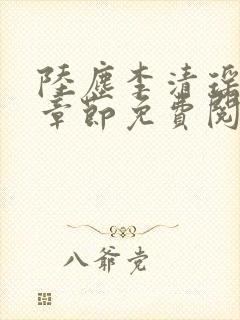 陸塵李清瑤
章節免費閱
八爺党